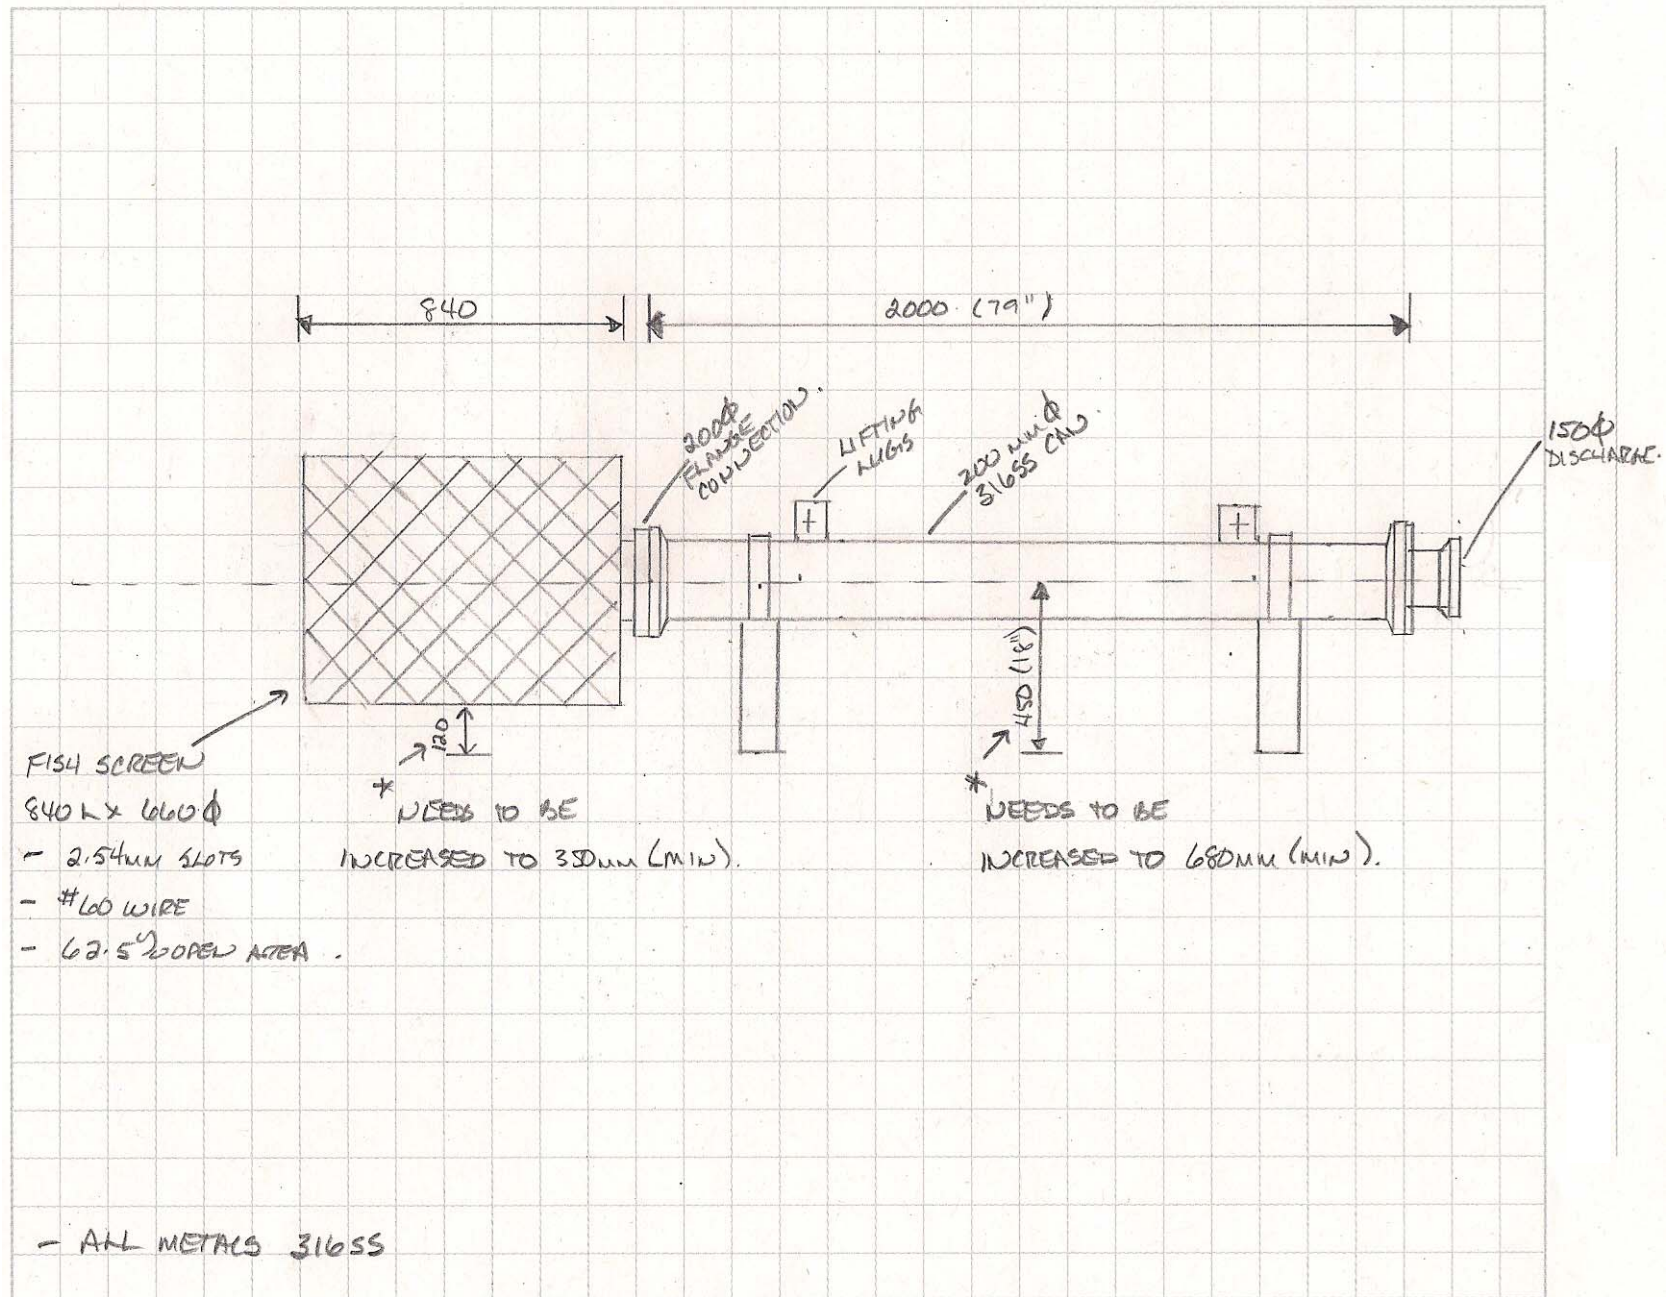 840
2000 (79")
200φ
FLANGE
CONNECTION.
LIFTING
LUGS
200 MM φ
316SS CAN
150φ
DISCHARGE.
120
450 (18")
FISH SCREEN
840 L x 660 φ
- 2.54MM SLOTS
- #60 WIRE
- 62.5% OPEN AREA.
* NEEDS TO BE
INCREASED TO 350MM (MIN).
* NEEDS TO BE
INCREASED TO 680MM (MIN).
- ALL METALS 316SS